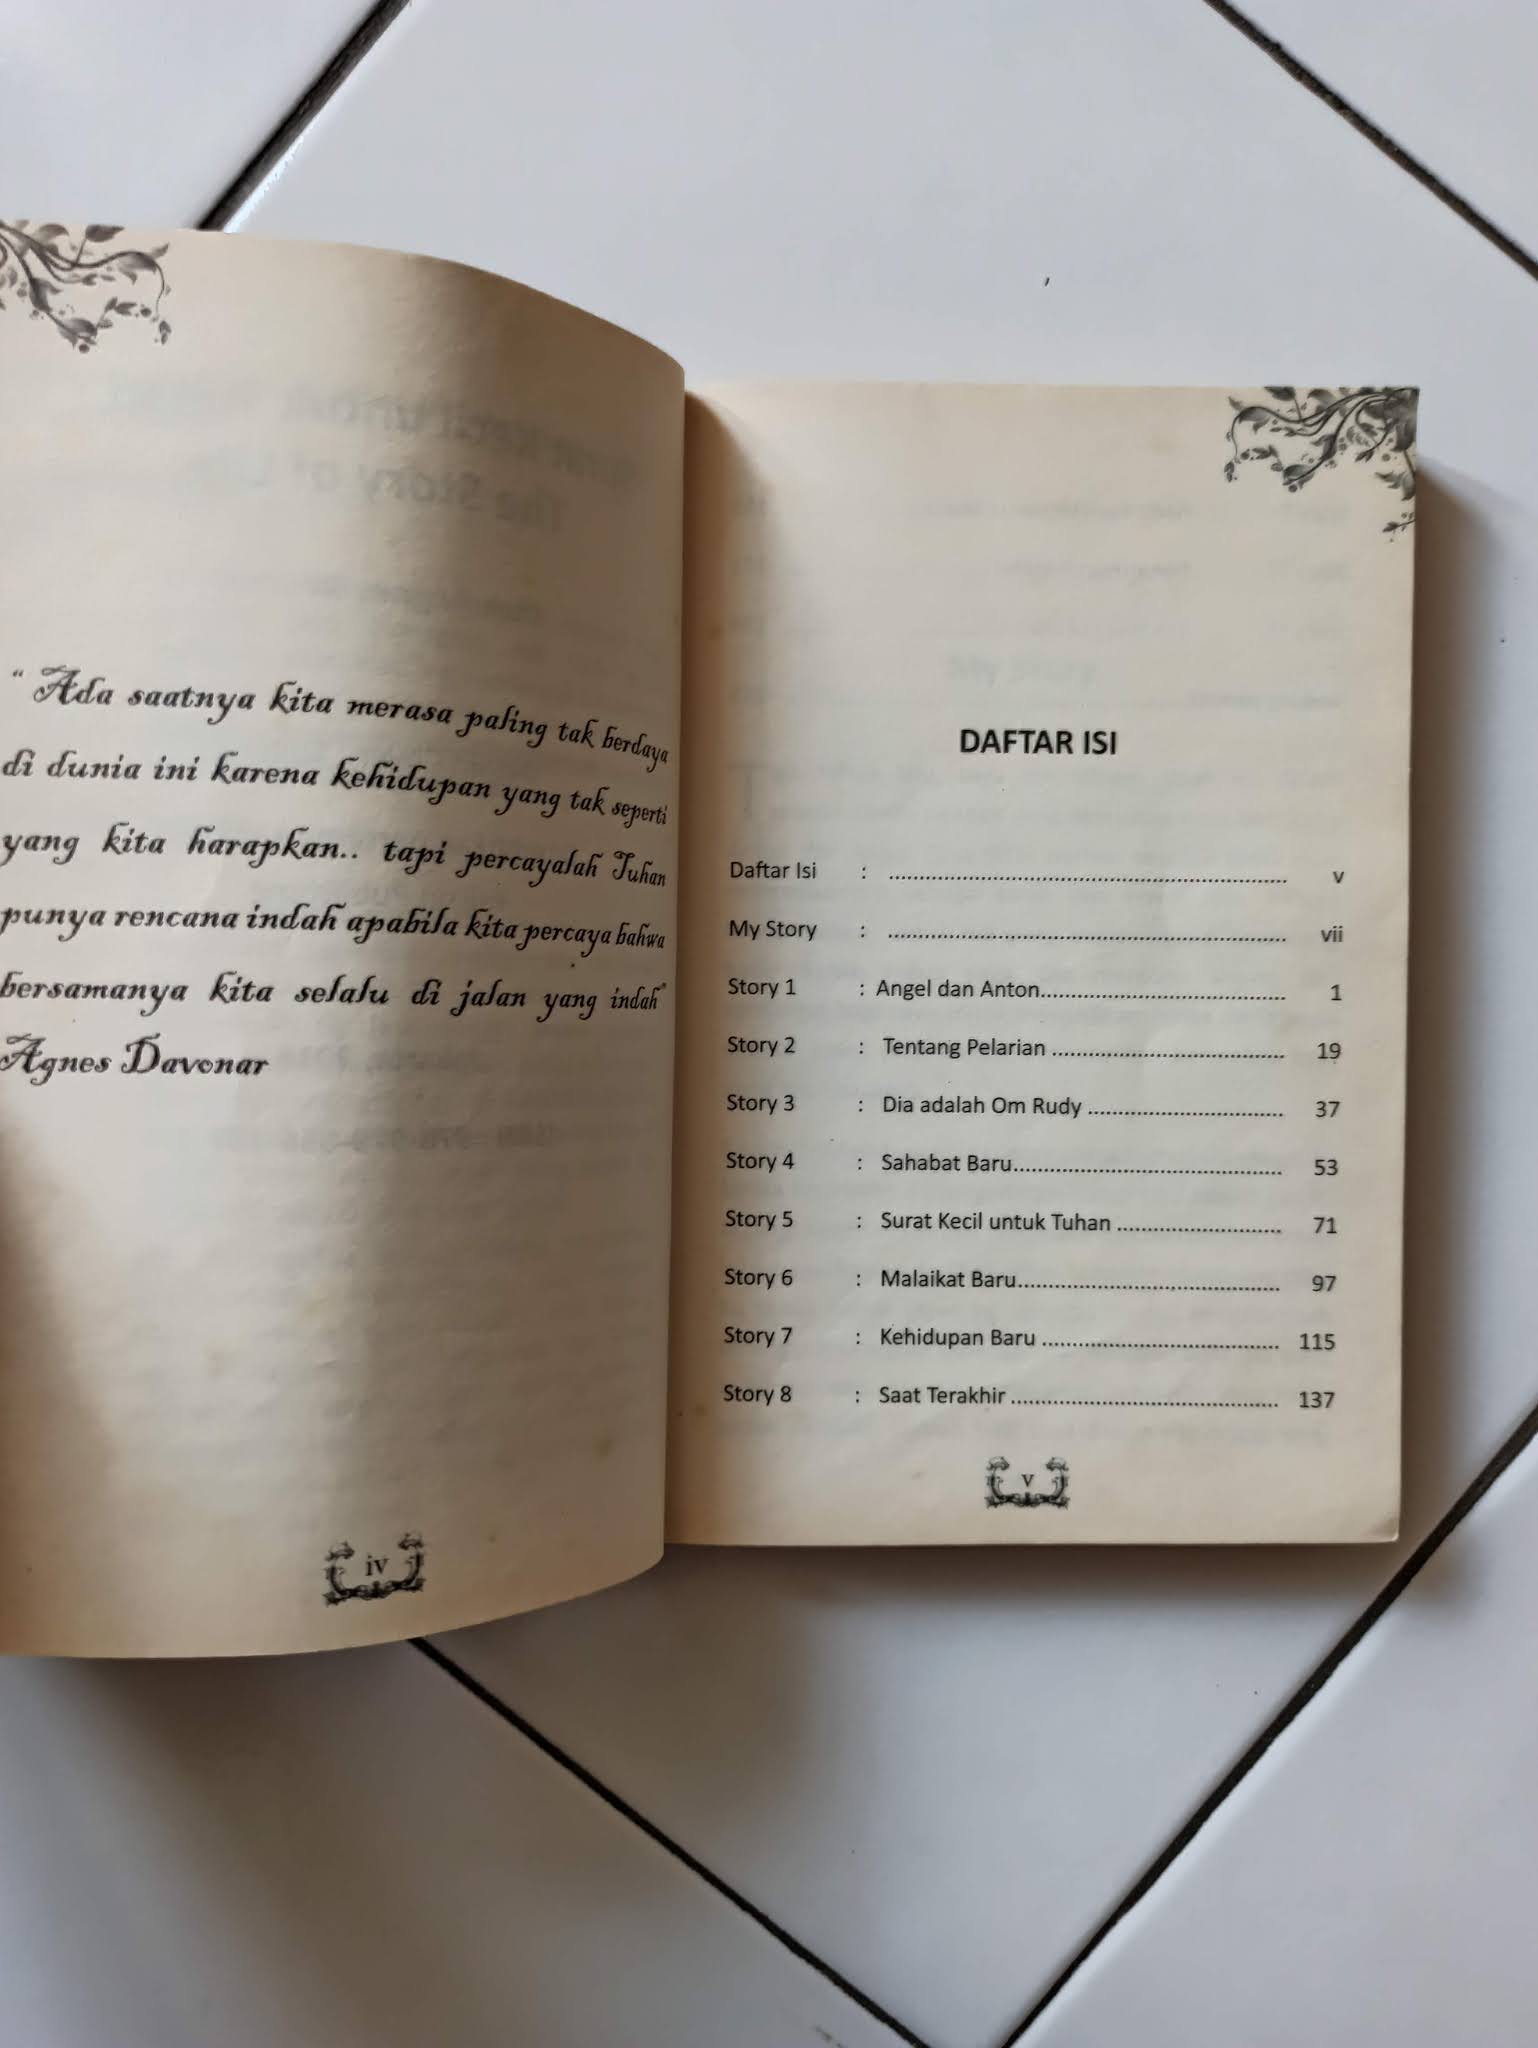 " Ada saatnya kita merasa paling tak berdaya
di dunia ini karena kehidupan yang tak seperti
yang kita harapkan.. tapi percayalah Tuhan
punya rencana indah apabila kita percaya bahwa
bersamanya kita selalu di jalan yang indah"
Agnes Davonar
iv
DAFTAR ISI
Daftar Isi : ........................................................ v
My Story : ........................................................ vii
Story 1 : Angel dan Anton................................... 1
Story 2 : Tentang Pelarian ................................. 19
Story 3 : Dia adalah Om Rudy ............................ 37
Story 4 : Sahabat Baru...................................... 53
Story 5 : Surat Kecil untuk Tuhan ....................... 71
Story 6 : Malaikat Baru..................................... 97
Story 7 : Kehidupan Baru .................................. 115
Story 8 : Saat Terakhir ...................................... 137
v